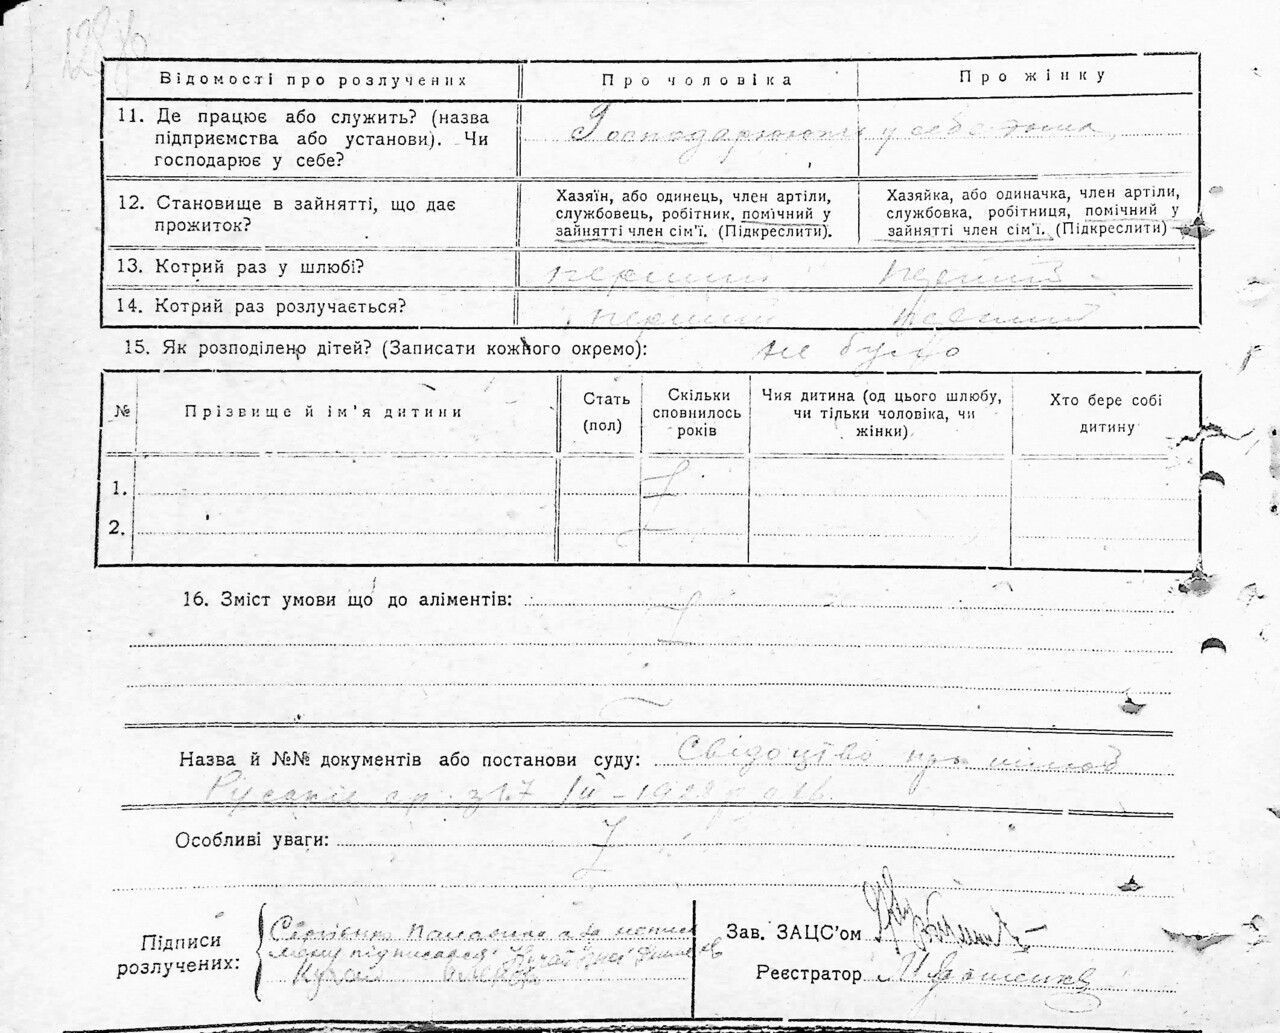 128
Відомості про розлучених
Про чоловіка
Про жінку
11. Де працює або служить? (назва
підприємства або установи). Чи
господарює у себе?
Господарюють у себе дома
12. Становище в зайнятті, що дає
прожиток?
Хазяїн, або одинець, член артілі,
службовець, робітник, помічний у
зайнятті член сім'ї. (Підкреслити).
Хазяйка, або одиначка, член артіли,
службовка, робітниця, помічний у
зайнятті член сім'ї. (Підкреслити)
13. Котрий раз у шлюбі?
перший
перший
14. Котрий раз розлучається?
перший
перший
15. Як розподілено дітей? (Записати кожного окремо):
не було
№
Прізвище й ім'я дитини
Стать
(пол)
Скільки
сповнилось
років
Чия дитина (од цього шлюбу,
чи тільки чоловіка, чи
жінки)
Хто бере собі
дитину
1.
2.
16. Зміст умови що до аліментів:
Назва й №№ документів або постанови суду: Свідоцтво про шлюб
Особливі уваги:
Підписи
розлучених:
Зав. ЗАЦС'ом
Реєстратор